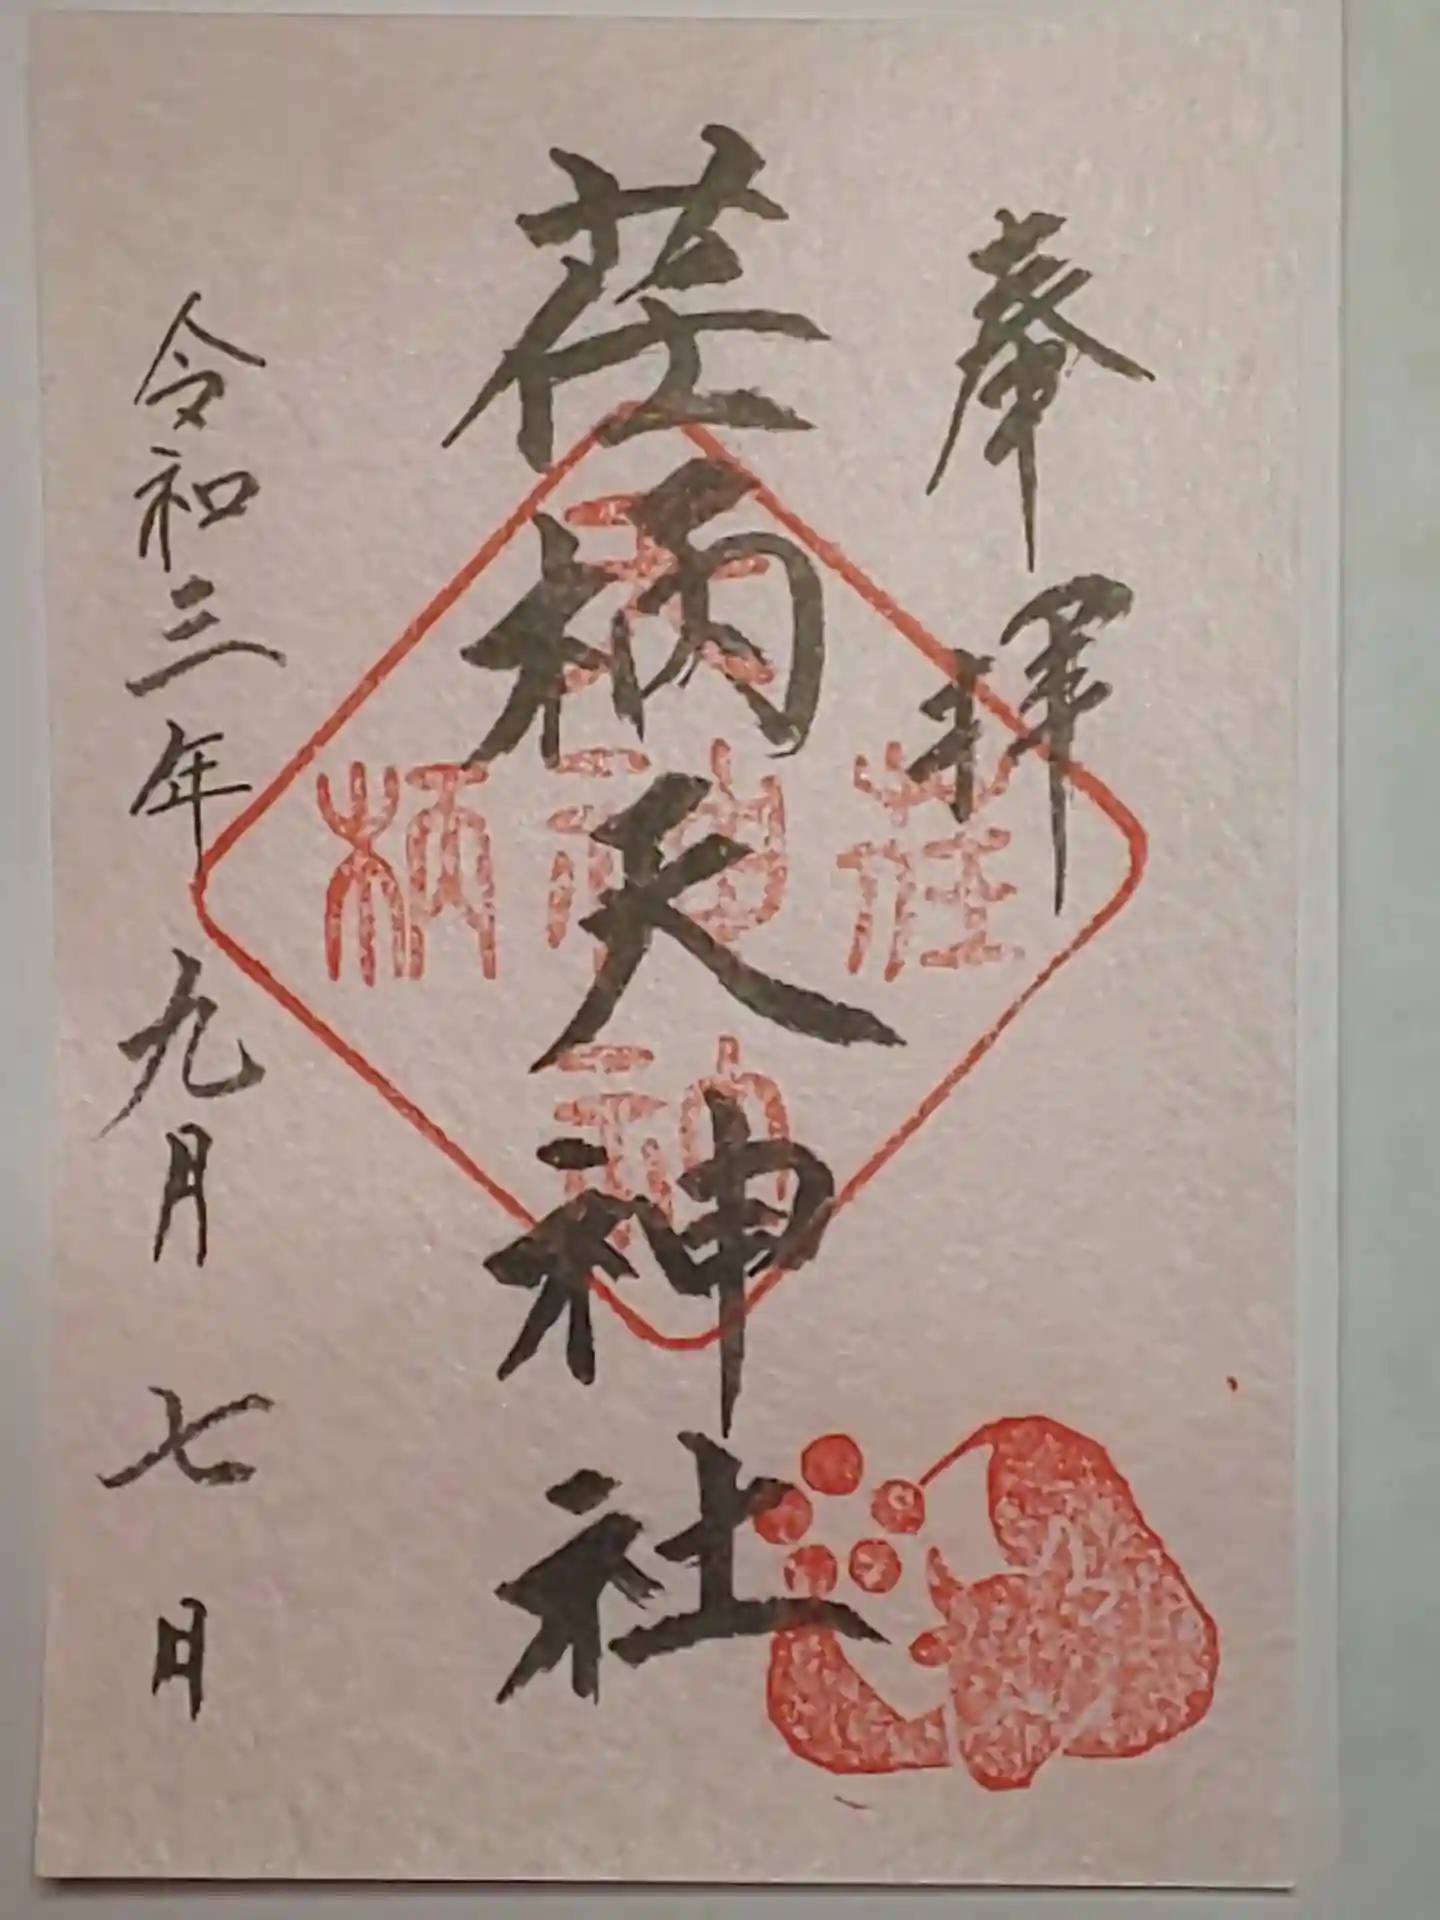 奉拝
荏柄天神社
令和三年九月七日
荏
天
神
柄